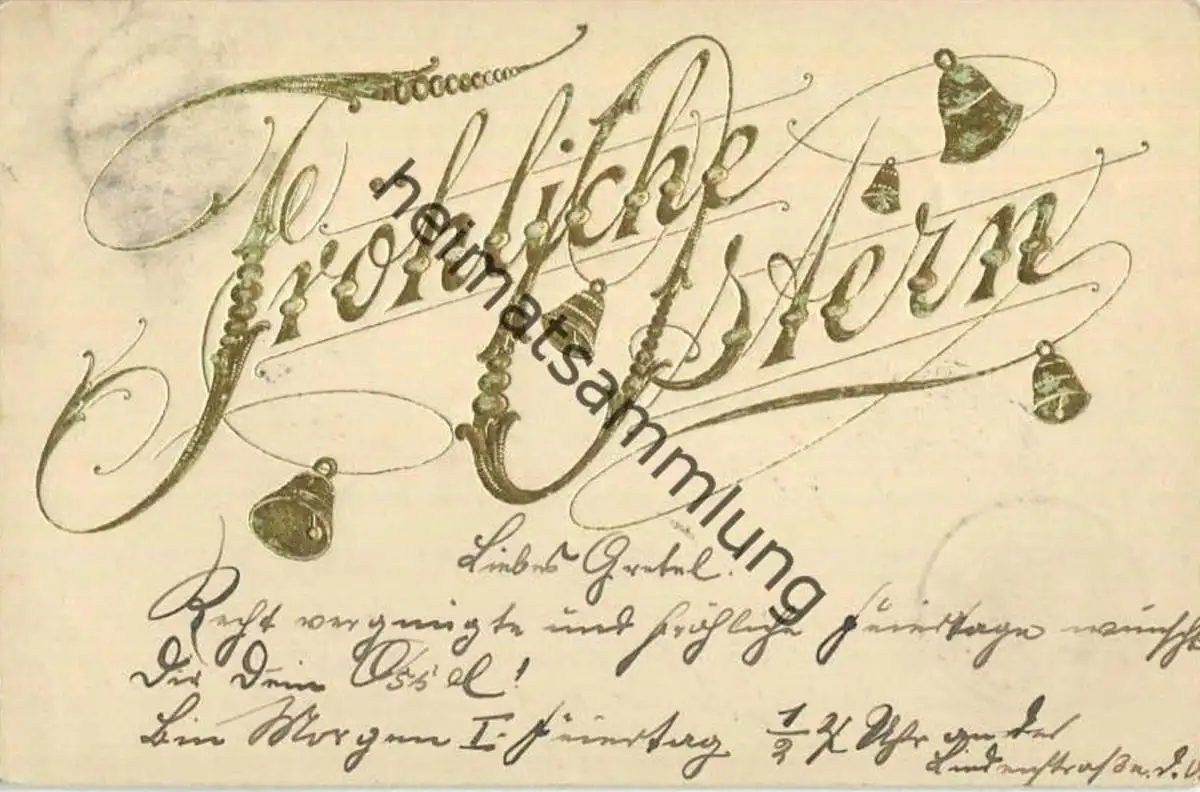 Fröhliche Ostern
heimatsammlung
Liebes Gretel.
Recht vergnügte und fröhliche Feiertage wünscht
Dir Dein Ossel!
Bin Morgen I. Feiertag ½ Uhr an der
Lindenstraße. d.